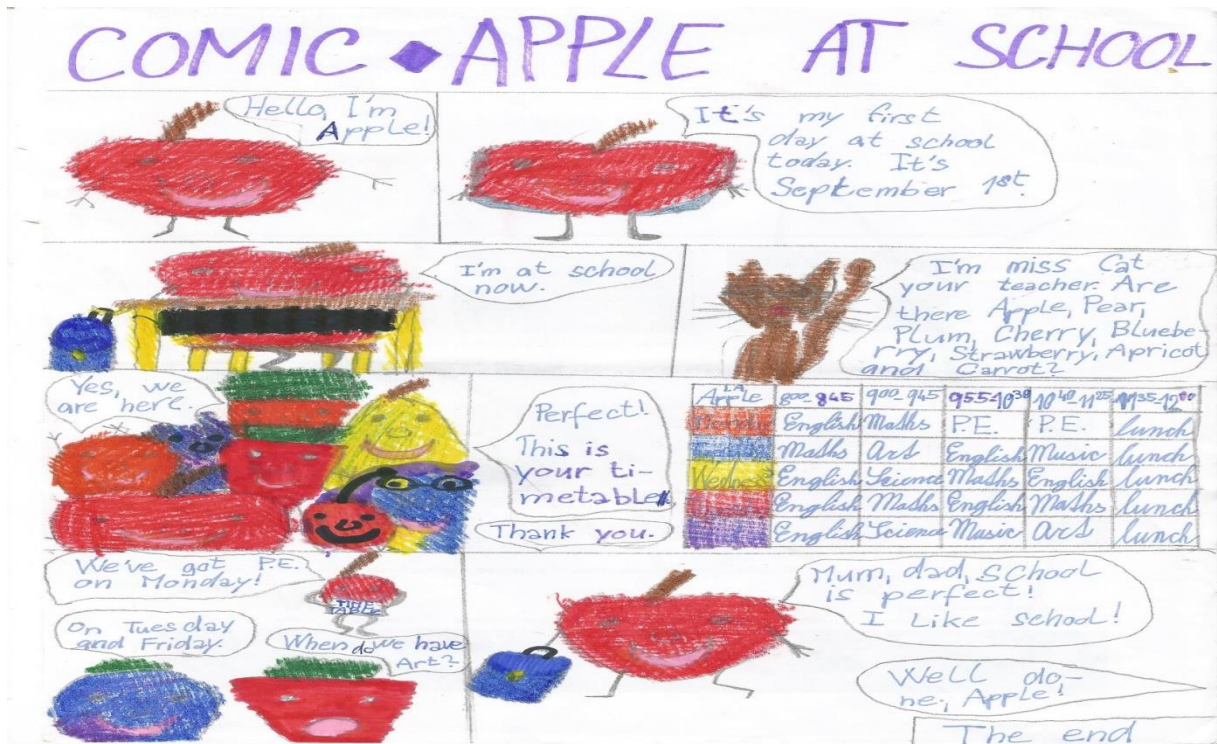 COMIC ◆ APPLE AT SCHOOL
Hello, I'm
Apple!
It's my first
day at school
today. It's
September 1st.
I'm at school
now.
I'm miss Cat
your teacher. Are
there Apple, Pear,
Plum, Cherry, Bluebe-
rry, Strawberry, Apricot
and Carrot?
Yes, we
are here.
Perfect!
This is
your ti-
metable.
Thank you.
Apple 8:00-8:45 9:00-9:45 9:55-10:30 10:40-11:25 11:35-12:00
English Maths P.E. P.E. lunch
Maths Art English Music lunch
Wednes English Science Maths English lunch
English Maths English Maths lunch
English Science Music Art lunch
We've got P.E.
on Monday!
TIME
TABLE
On Tuesday
and Friday.
When do we have
Art?
Mum, dad, school
is perfect!
I Like school!
Well do-
ne, Apple!
The end